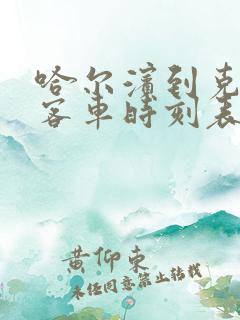 哈尔滨到克
客车时刻表
黄仰东
未经同意禁止转载